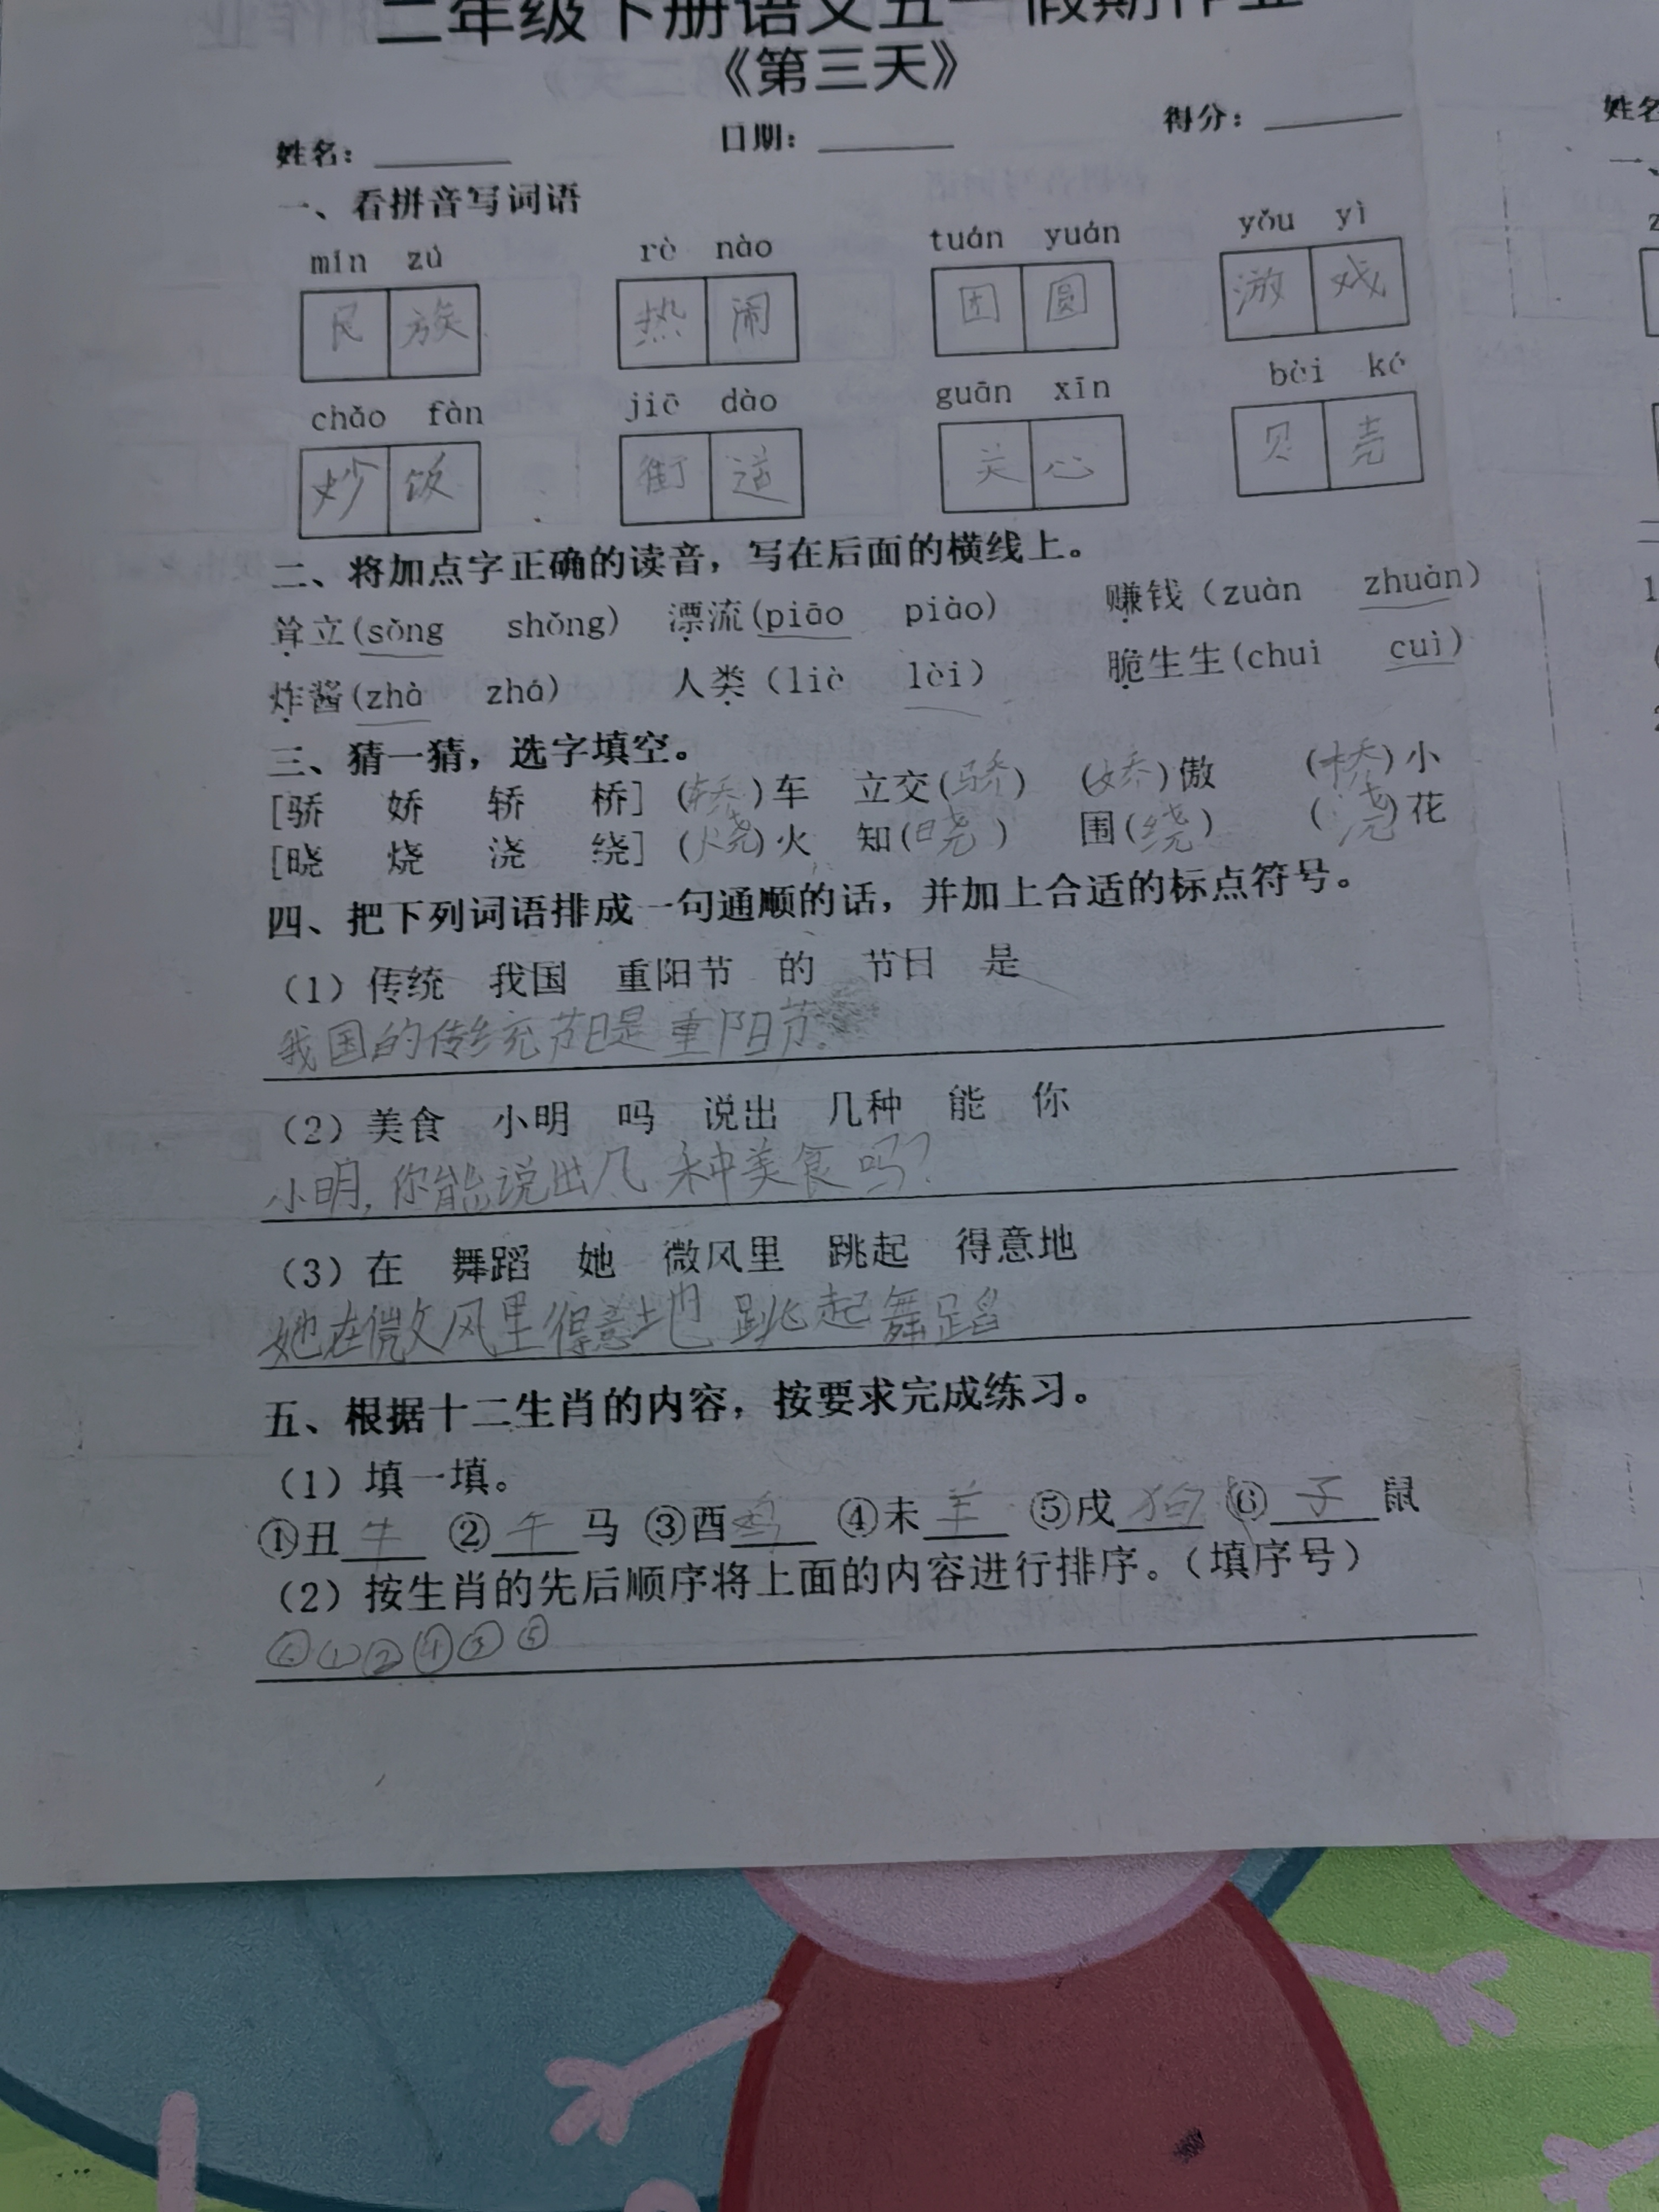 二年级下册语文五一假期作业
《第三天》
姓名： 日期： 得分：
一、看拼音写词语
mín zú rè nào tuán yuán yǒu yì
民族 热闹 团圆 游戏
chǎo fàn jiē dào guān xīn bèi ké
炒饭 街道 关心 贝壳
二、将加点字正确的读音，写在后面的横线上。
耸立(sǒng shǒng) 漂流(piāo piào) 赚钱（zuàn zhuàn）
炸酱(zhà zhá) 人类（liè lèi） 脆生生(chuì cuì)
三、猜一猜，选字填空。
[骄 娇 轿 桥] (轿)车 立交(骄) (娇)傲 (桥)小
[晓 烧 浇 绕] (烧)火 知(晓) 围(绕) (浇)花
四、把下列词语排成一句通顺的话，并加上合适的标点符号。
（1）传统 我国 重阳节 的 节日 是
我国的传统节日是重阳节。
（2）美食 小明 吗 说出 几种 能 你
小明，你能说出几种美食吗？
（3）在 舞蹈 她 微风里 跳起 得意地
她在微风里得意地跳起舞蹈
五、根据十二生肖的内容，按要求完成练习。
（1）填一填。
①丑牛 ②午马 ③酉鸡 ④未羊 ⑤戌狗 ⑥子鼠
（2）按生肖的先后顺序将上面的内容进行排序。（填序号）
⑥①②④③⑤